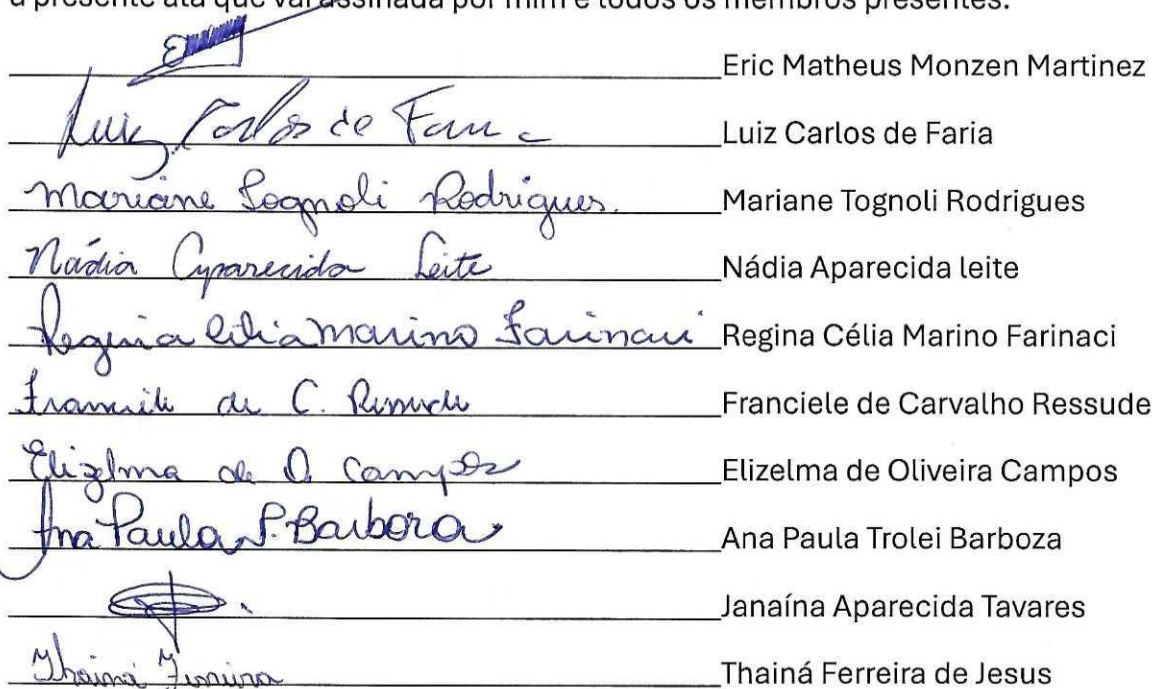 a presente ata que vai assinada por mim e todos os membros presentes.
Eric Matheus Monzen Martinez
Luiz Carlos de Faria Luiz Carlos de Faria
Mariane Tognoli Rodrigues. Mariane Tognoli Rodrigues
Nádia Aparecida Leite Nádia Aparecida leite
Regina Célia Marino Farinaci Regina Célia Marino Farinaci
Franciele de C. Ressude Franciele de Carvalho Ressude
Elizelma de O. Campos Elizelma de Oliveira Campos
Ana Paula T. Barboza Ana Paula Trolei Barboza
Janaína Aparecida Tavares
Thainá Ferreira Thainá Ferreira de Jesus